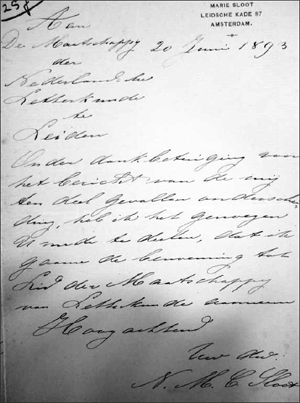 25
MARIE SLOOT
LEIDSCHE KADE 87
AMSTERDAM.
Aan
De Maatschappy 20 Juni 1893
der
Nederlandsche
Letterkunde
te
Leiden
Onder dankbetuiging voor
het bericht van de mij
ten deel gevallen onderschei
ding, heb ik het genoegen
U mede te deelen, dat ik
gaarne de benoeming tot
Lid der Maatschappy
van Letterkunde aanneem
Hoogachtend
Uw dw.
N. M. C. Sloot